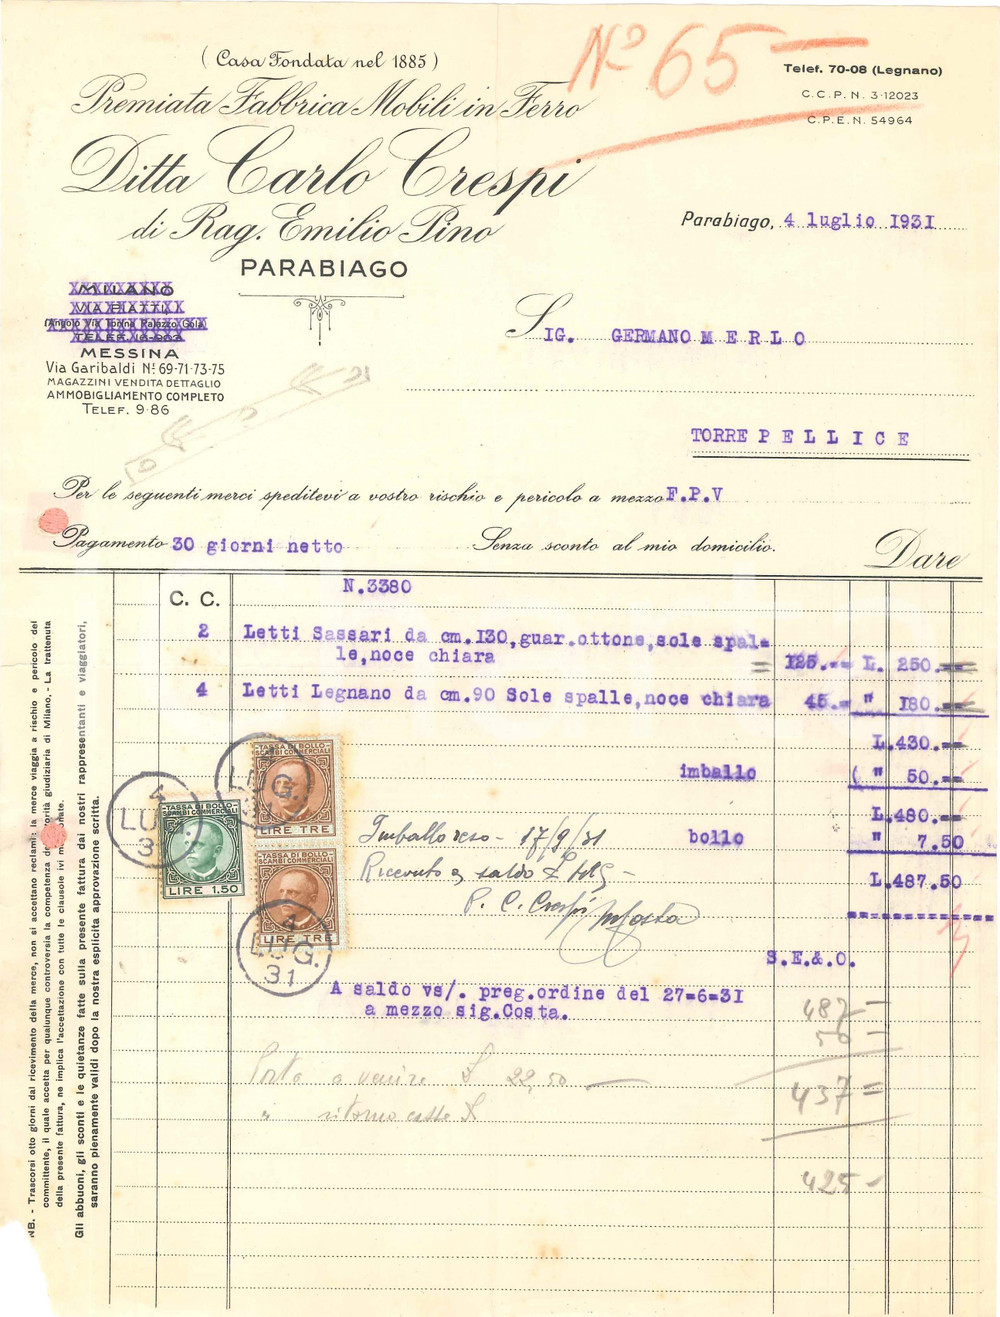 ( Casa Fondata nel 1885 )
Premiata Fabbrica Mobili in Ferro
Ditta Carlo Crespi
di Rag. Emilio Pino
PARABIAGO
Nº 65
Telef. 70-08 (Legnano)
C.C.P.N. 3-12023
C.P.E.N. 54964
Parabiago, 4 luglio 1931
MILANO
VIA PIATTI,
(Angolo Via Torino Palazzo Gola)
MESSINA
Via Garibaldi Nº 69-71-73-75
MAGAZZINI VENDITA DETTAGLIO
AMMOBIGLIAMENTO COMPLETO
TELEF. 9-86
SIG. GERMANO M E R L O
TORRE P E L L I C E
Per le seguenti merci speditevi a vostro rischio e pericolo a mezzo F.P.V
Pagamento 30 giorni netto Senza sconto al mio domicilio. Dare
N.3380
C. C.
2 Letti Sassari da cm.130,guar.ottone,sole spal=
le,noce chiara = 125.-- L. 250.--
4 Letti Legnano da cm.90 Sole spalle,noce chiara 45.= " 180.--
L.430.--
imballo ( " 50.--
L.480.--
bollo " 7.50
L.487.50
TASSA DI BOLLO
SCAMBI COMMERCIALI
LIRE TRE
TASSA DI BOLLO
SCAMBI COMMERCIALI
LIRE 1.50
TASSA DI BOLLO
SCAMBI COMMERCIALI
LIRE TRE
4
LUG.
31
4
LUG.
31
4
LUG.
31
Imballo reso - 17/9/31
Ricevuto a saldo
P. C. Crespi
S.E.&.O.
A saldo vs/. preg.ordine del 27=6=31
a mezzo sig.Costa.
487 -
50 -
437 =
425 -
Porto a venire £ 22,50
" ritorno casse £
NB. - Trascorsi otto giorni dal ricevimento della merce, non si accettano reclami: la merce viaggia a rischio e pericolo del
committente, il quale accetta per qualunque controversia la competenza dell'autorità giudiziaria di Milano. - La trattenuta
della presente fattura, ne implica l'accettazione con tutte le clausole ivi
Gli abbuoni, gli sconti e le quietanze fatte sulla presente fattura dai nostri rappresentanti e viaggiatori,
saranno pienamente validi dopo la nostra esplicita approvazione scritta.